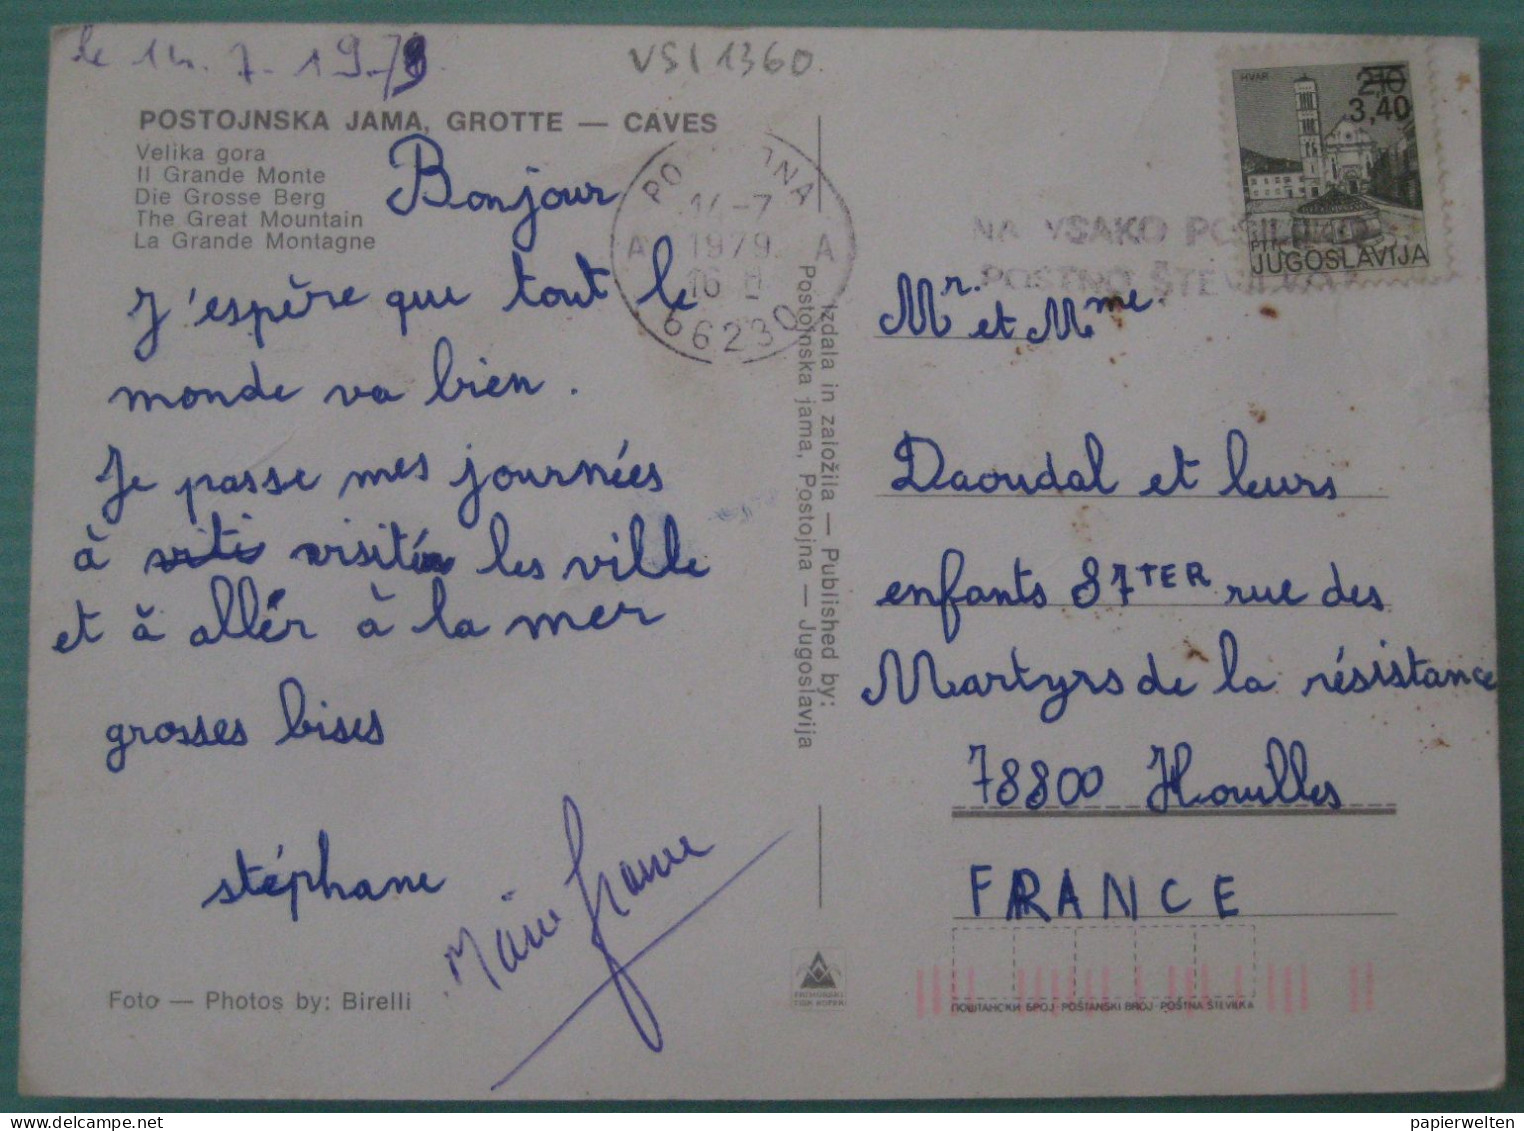 le 14.7.1979
VSI 1360
POSTOJNSKA JAMA, GROTTE — CAVES
Velika gora
Il Grande Monte
Die Grosse Berg
The Great Mountain
La Grande Montagne
Bonjour
J'espère que tout le
monde va bien.
Je passe mes journées
à visiter les ville
et à aller à la mer
grosses bises
stéphane
Marie france
Foto — Photos by: Birelli
14-7
1979
16
A A
66230
Izdala in založila — Published by:
Postojnska jama, Postojna — Jugoslavija
NA VSAKO
POSTNO
HVAR
2,10
3,40
PTT
JUGOSLAVIJA
Mr. et Mme.
Daoudal et leurs
enfants 87TER rue des
Martyrs de la résistance
78800 Houilles
FRANCE
ПОШТАНСКИ БРОЈ · POŠTANSKI BROJ · POŠTNA ŠTEVILKA
papierwelten